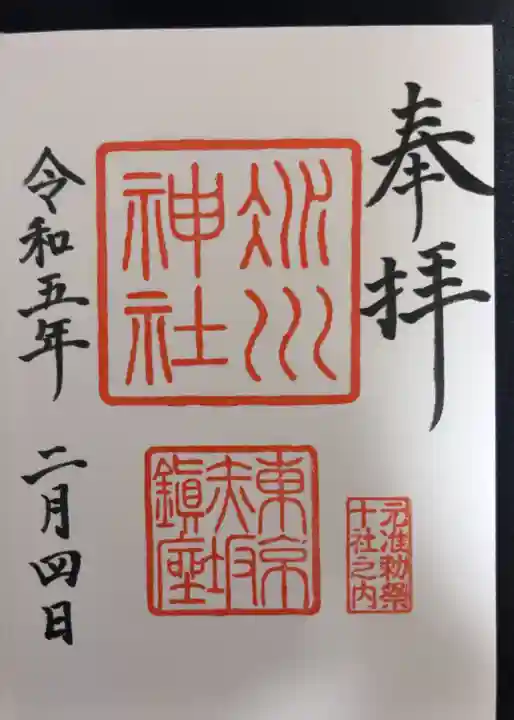 奉拝
氷川
神社
東京
赤坂
鎮座
元准勅祭
十社之内
令和五年 二月四日